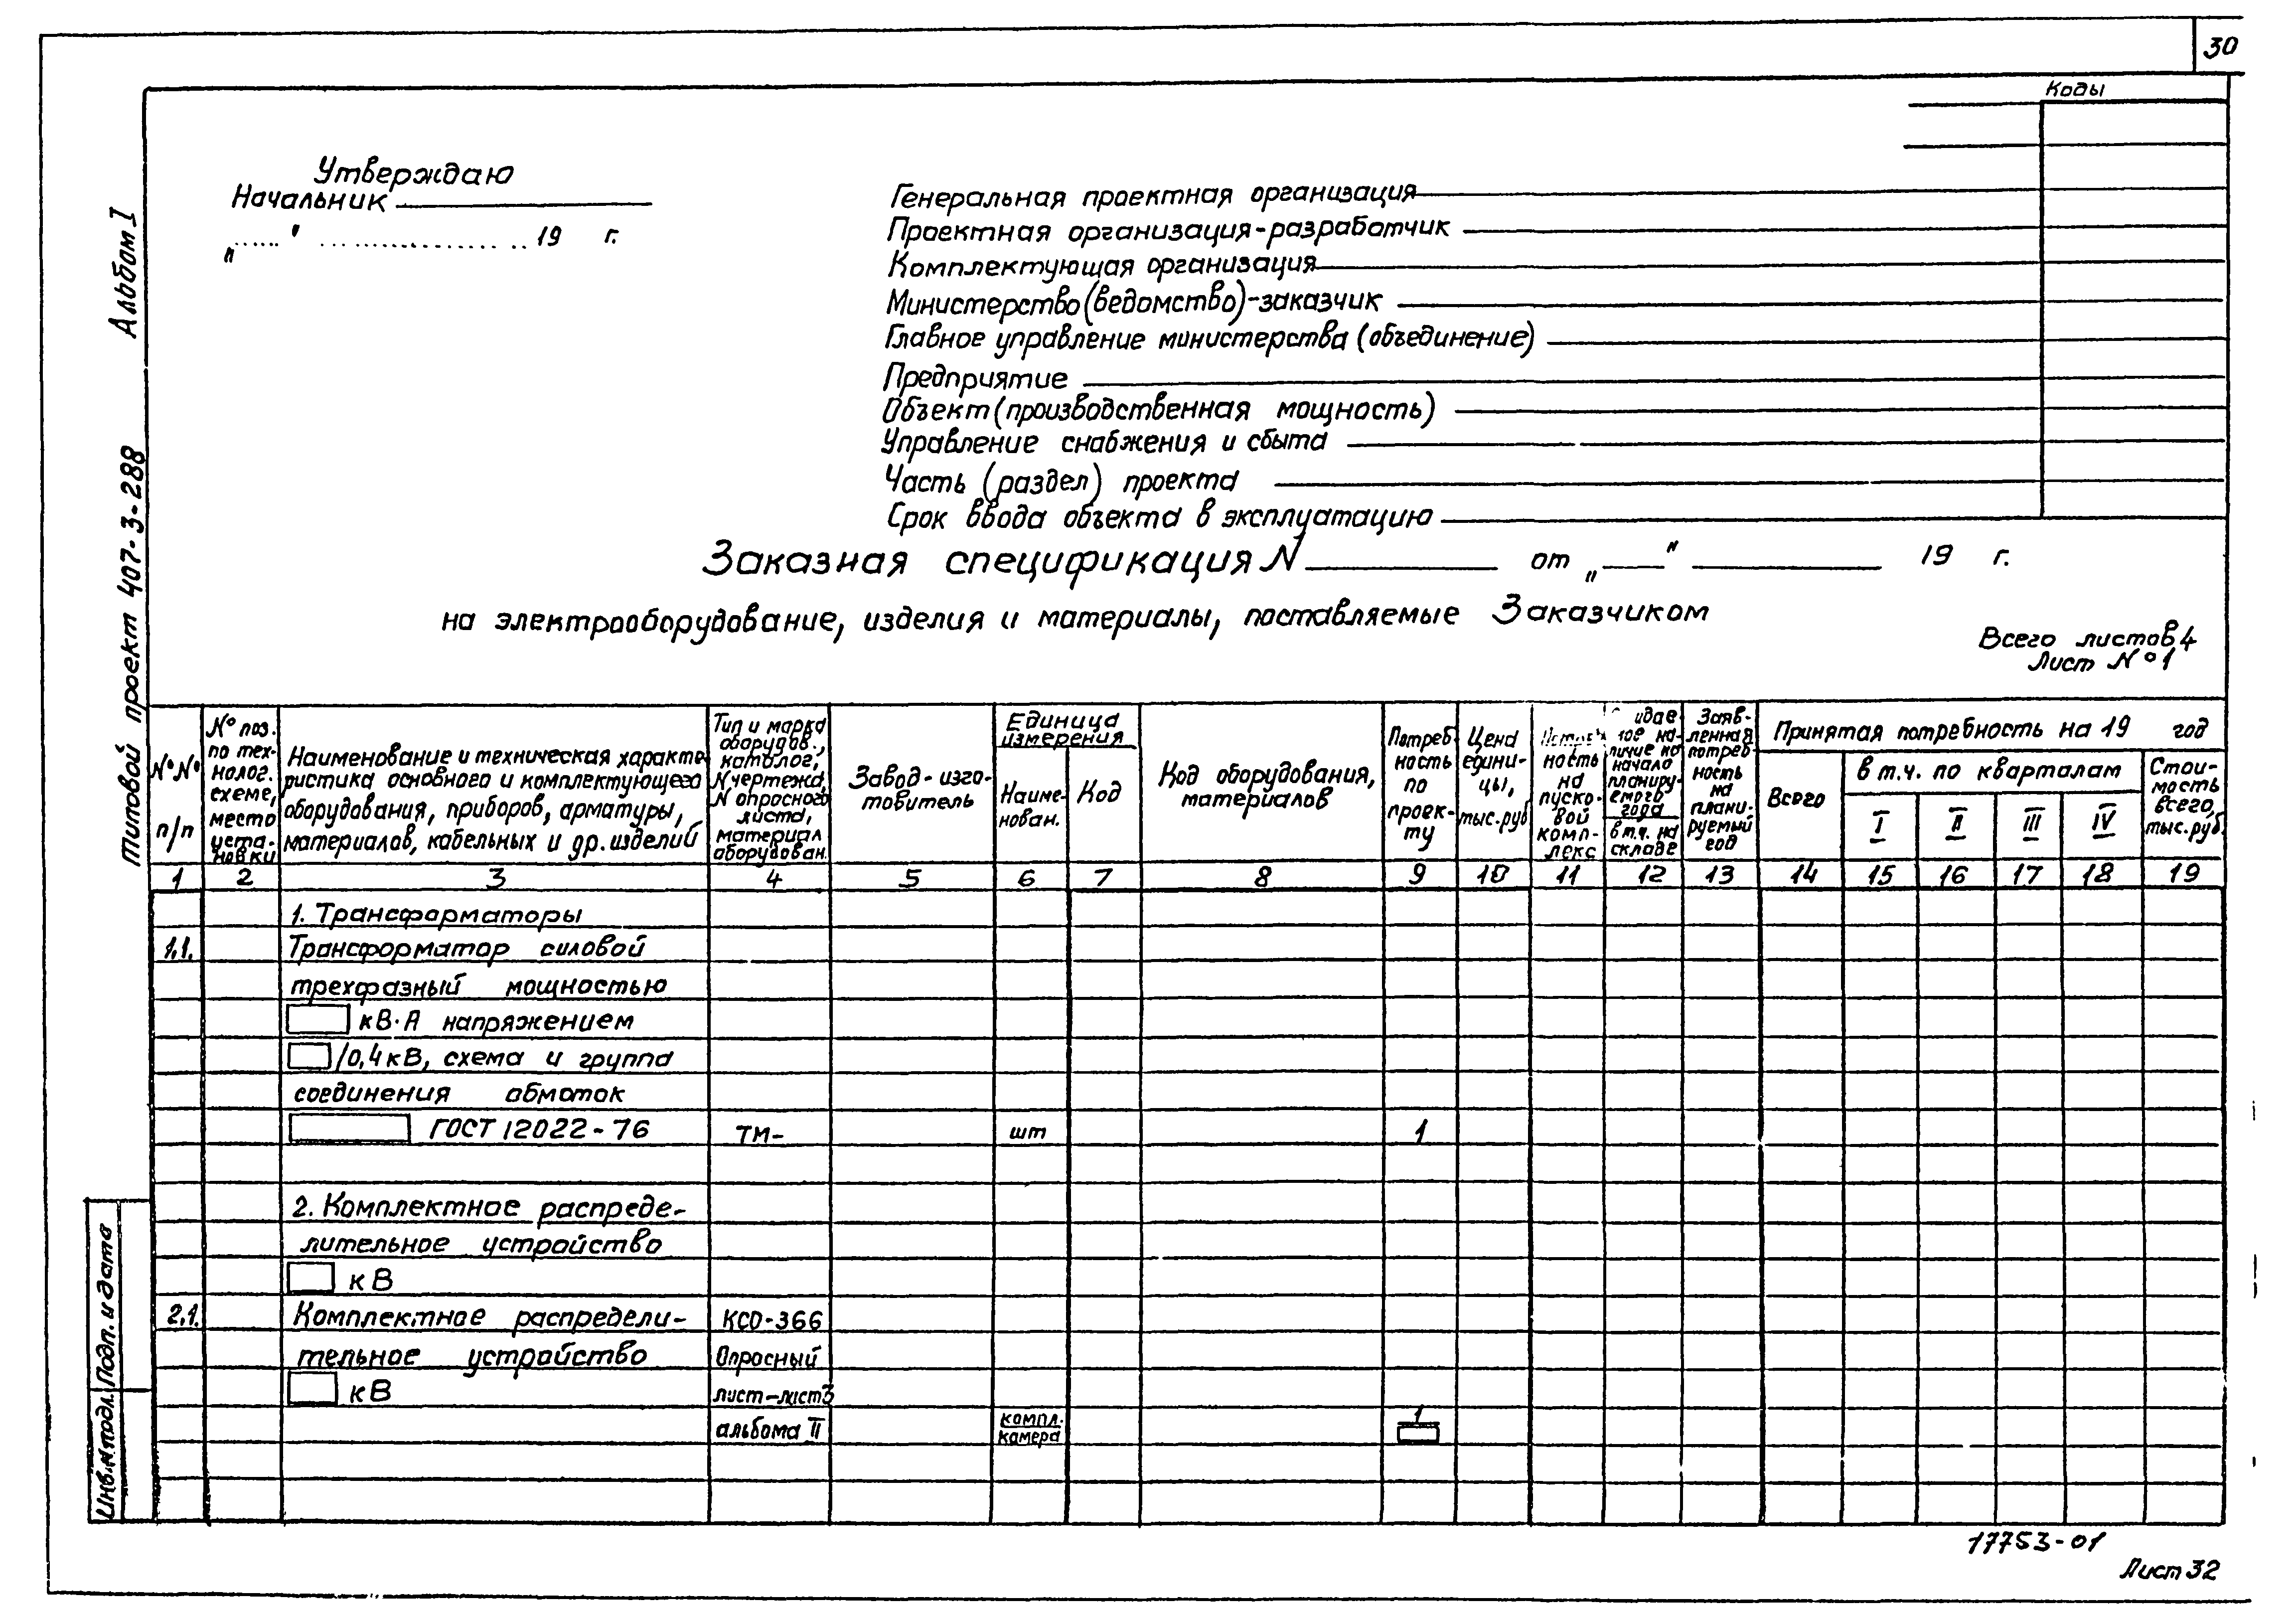 30
Коды
Утверждаю
Начальник
„ ...... " ........................ 19 г.
Генеральная проектная организация
Проектная организация-разработчик
Комплектующая организация
Министерство (ведомство)-заказчик
Главное управление министерства (объединение)
Предприятие
Объект (производственная мощность)
Управление снабжения и сбыта
Часть (раздел) проекта
Срок ввода объекта в эксплуатацию
Заказная спецификация N от „ " 19 г.
на электрооборудование, изделия и материалы, поставляемые Заказчиком
Всего листов 4
Лист № 1
Типовой проект 407-3-288 Альбом I
№№
п/п
№ поз.
по тех-
нолог.
схеме,
место
уста-
новки
Наименование и техническая характе-
ристика основного и комплектующего
оборудования, приборов, арматуры,
материалов, кабельных и др. изделий
Тип и марка
оборудов.,
каталог,
N чертежа,
N опросного
листа,
материал
оборудован.
Завод-изго-
товитель
Единица
измерения
Наиме-
нован.
Код
Код оборудования,
материалов
Потреб-
ность
по
проек-
ту
Цена
едини-
цы,
тыс.руб
ность
на
пуско-
вой
комп-
лекс
идае-
мое на-
личие на
начало
планиру-
емого
года
в т.ч. на
складе
Заяв-
ленная
потреб-
ность
на
плани-
руемый
год
Принятая потребность на 19 год
Всего
в т.ч. по кварталам
I II III IV
Стои-
мость
всего,
тыс.руб.
1 2 3 4 5 6 7 8 9 10 11 12 13 14 15 16 17 18 19
1. Трансформаторы
1.1. Трансформатор силовой
трехфазный мощностью
кВ·А напряжением
/0,4 кВ, схема и группа
соединения обмоток
ГОСТ 12022-76 ТМ- шт 1
2. Комплектное распреде-
лительное устройство
кВ
2.1. Комплектное распредели- КСО-366
тельное устройство Опросный
кВ лист-лист3
альбома II компл. 1
камера
Инв.N подл. Подп. и дата
17753-01
Лист 32